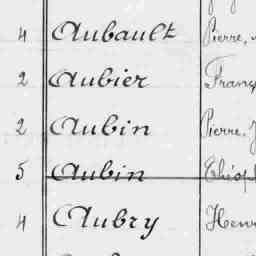 4 Aubault Pierre,
2 Aubier Franç
2 Aubin Pierre, J
5 Aubin Théop
4 Aubry Henr